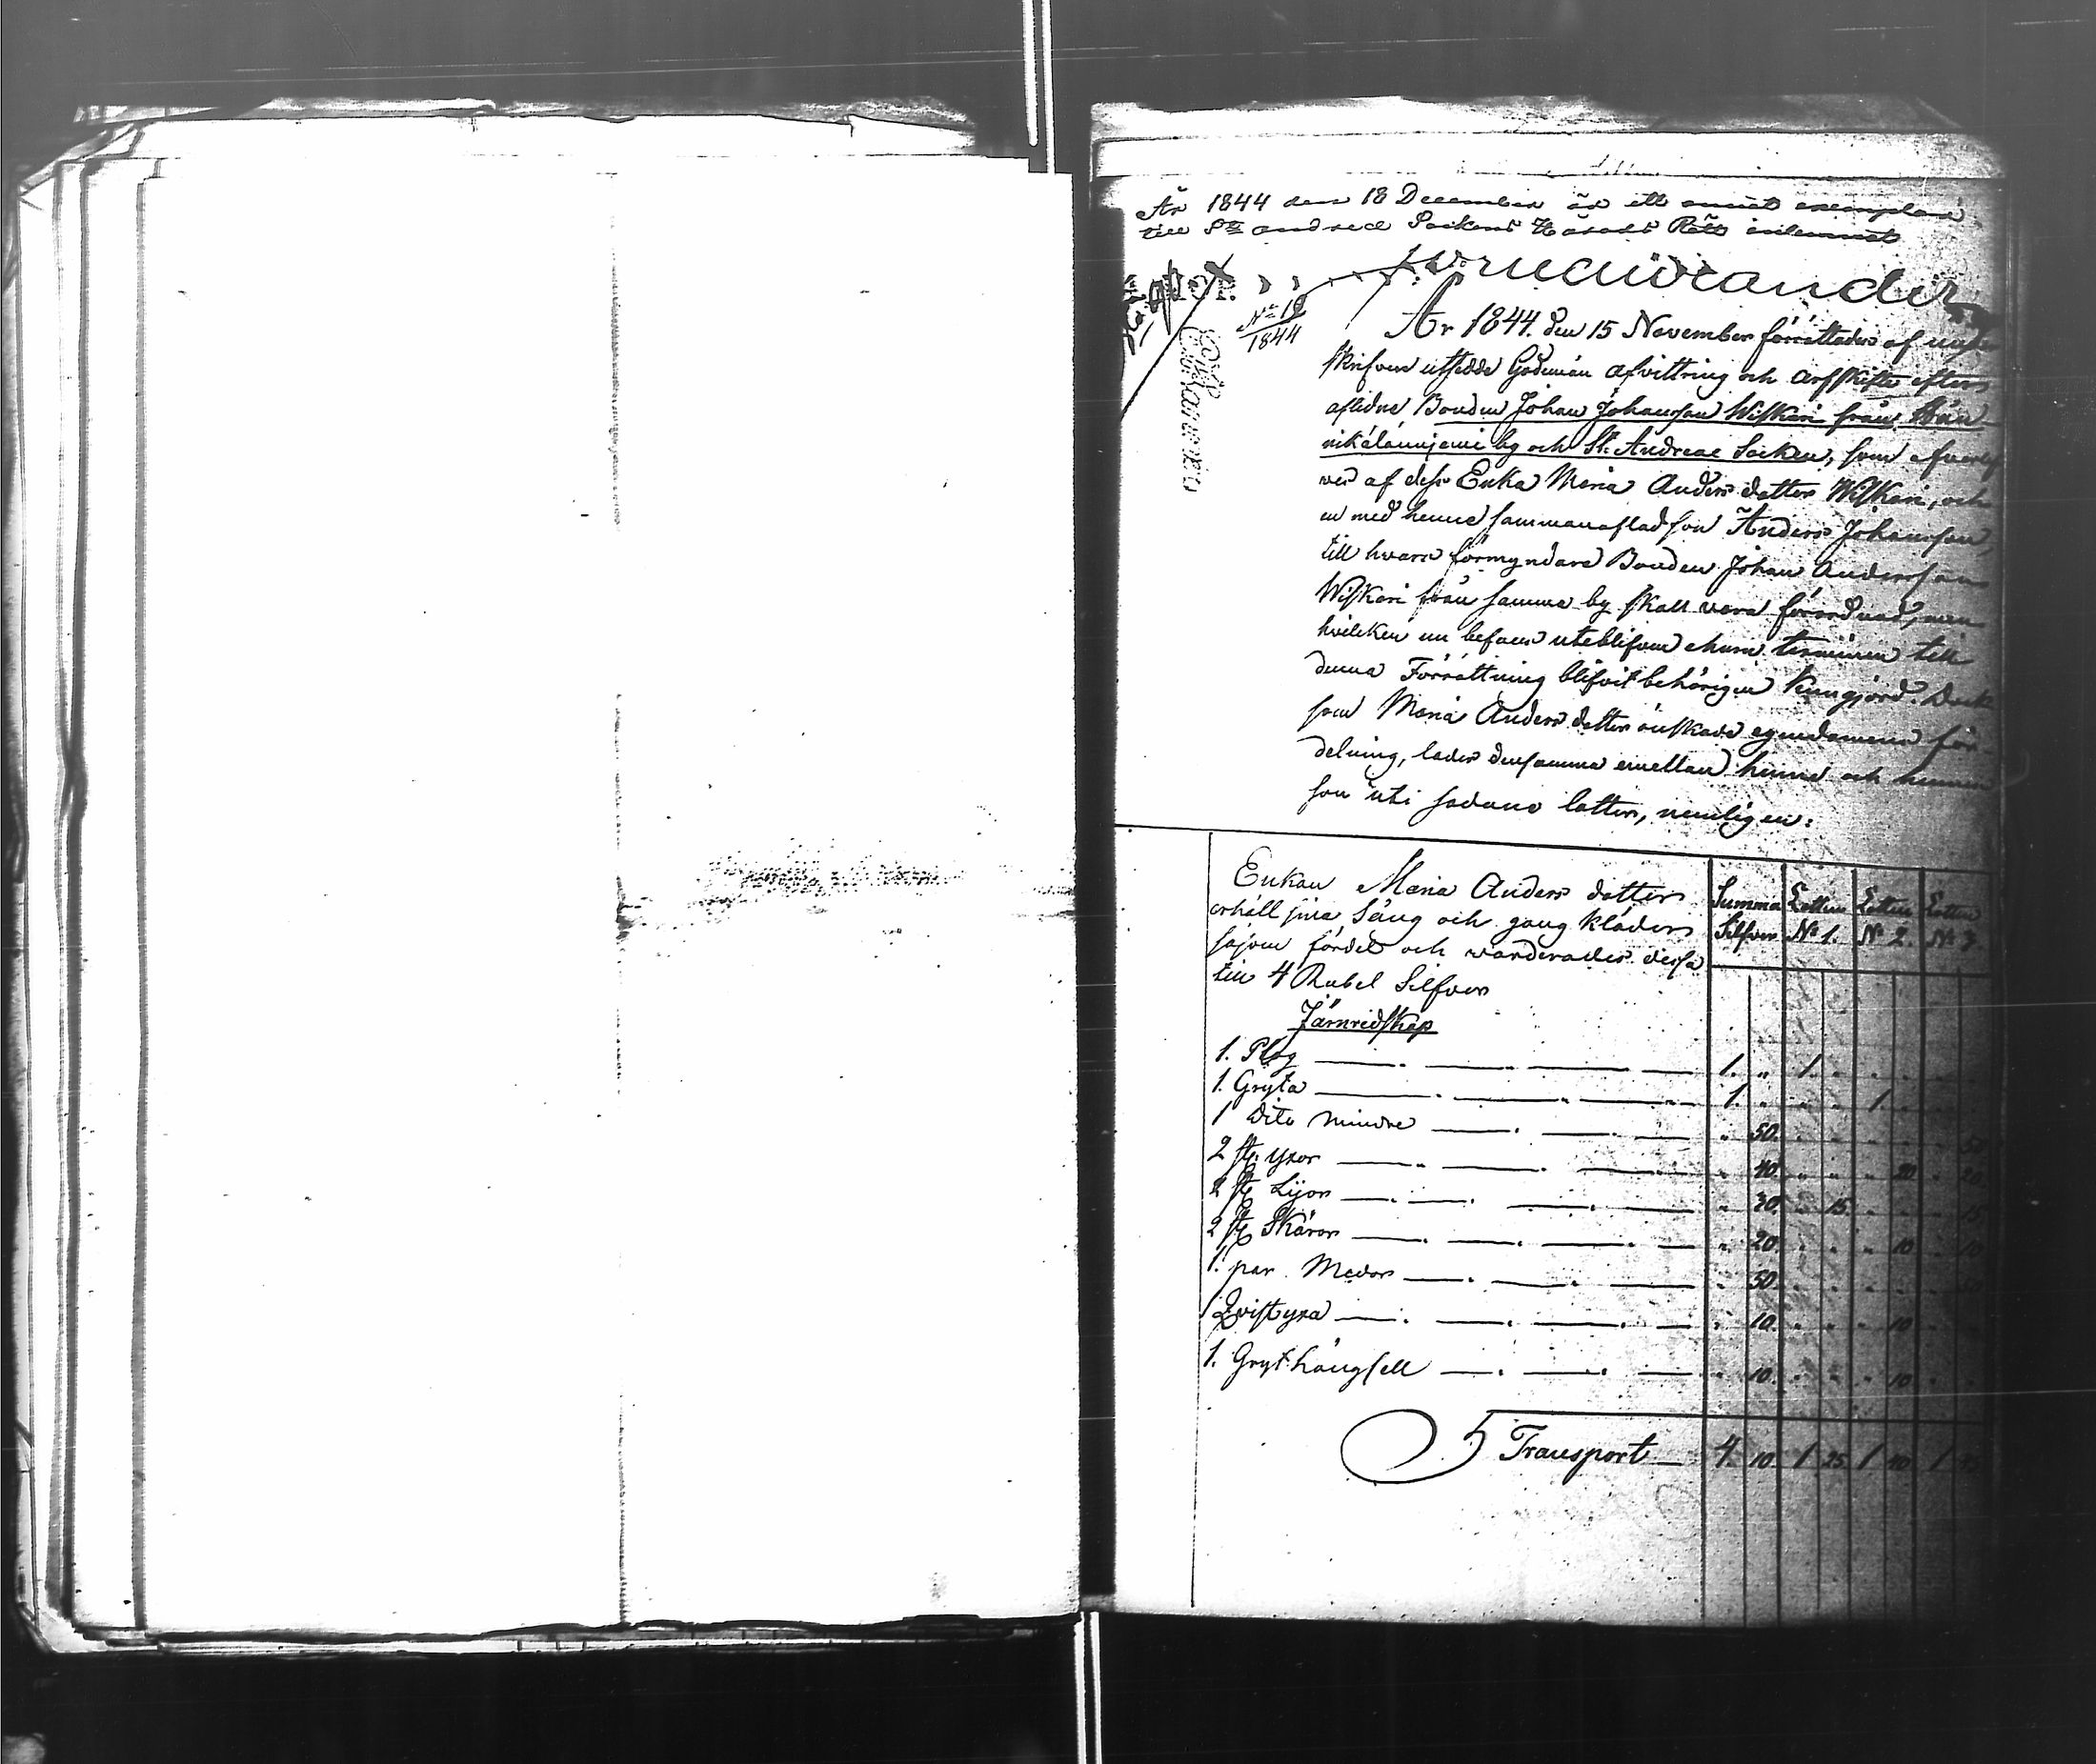 År 1844 den 18 December är ett annat exemplar
till S:t Andreæ Sockens Härads Rätt inlemnat
N:o 19
1844
År 1844. den 15 November förrättades af under
skrifven utsedde Godemän afvittring och arfskifte efter
aflidne Bonden Johan Johansson Wiskari från Män-
nikálánnjemi by och S:t Andreae Socken, som efverlef
ves af dess Enka Maria Anders dotter Wiskari, och
en med henne sammanaflad son Anders Johansson,
till hvars förmyndare Bonden Johan Andersson
Wiskari från samma by skall vara förordnad, men
hvilcken nu befans utebliven ehuru terminen till
denna Förrättning blifvit behörigen kungjord. Dock
som Maria Anders dotter önskade egendomens för-
delning, lades densamma emellan henne och hennes
son uti sådane lotter, nemligen:
Enkan Maria Anders dotter
erhöll sina Säng och gång kläder
såsom fördel och värderades dessa
till 4 Rubel Silfver
Summa Silfver | Lotten N:o 1. | Lotten N:o 2. | Lotten N:o 3
Järnredskap
1. Plog 1. " 1. "
1. Gryta 1. " " " 1.
1 Dito mindre " 50. " " " " " 50
2 st. yxor " 40. " " " 20 " 20.
2 st. Lijor " 30. " 15. " " " 15
2 st. Skäror " 20. " " " 10 " 10
1. par. Medor " 50.
1 Qvistyxa " 10. " " " 10
1. Grythängsell " 10. " " " 10
Transport 4. 10. 1 25. 1 40 1